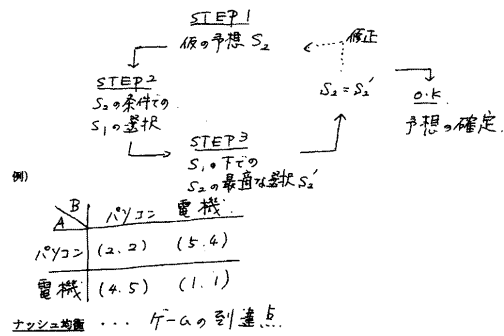 STEP1
仮の予想 S₂
修正
STEP2
S₂の条件での
S₁の選択
S₂=S₂'
O.K
予想の確定.
STEP3
S₁の下での
S₂の最適な選択 S₂'
例)
B
A
パソコン 電機
パソコン (2.2) (5.4)
電機 (4.5) (1.1)
ナッシュ均衡 ... ゲームの到達点